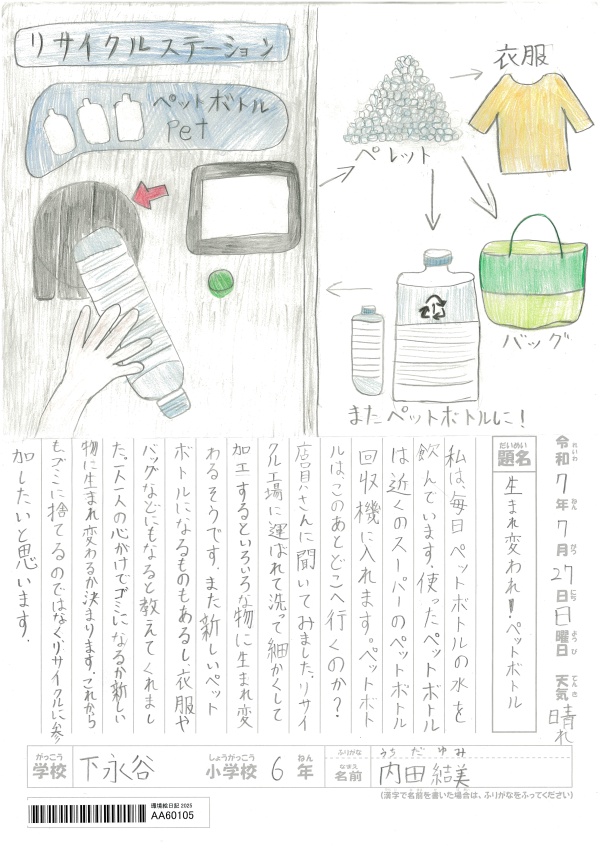 リサイクルステーション
ペットボトル
Pet
ペレット
衣服
バッグ
またペットボトルに!
令和7年7月27日日曜日 天気晴れ
れいわ ねん がつ にち ようび てんき
だいめい
題名 生まれ変われ!ペットボトル
私は、毎日ペットボトルの水を
飲んでいます。使ったペットボトル
は近くのスーパーのペットボトル
回収機に入れます。ペットボト
ルは、このあとどこへ行くのか?
店員さんに聞いてみました。リサイ
クル工場に運ばれて洗って細かくして
加工するといろいろな物に生まれ変
わるそうです。また新しいペット
ボトルになるものもあるし、衣服や
バッグなどにもなると教えてくれまし
た。一人一人の心がけでゴミになるか新しい
物に生まれ変わるか決まります。これから
もゴミに捨てるのではなくリサイクルに参
加したいと思います。
がっこう しょうがっこう ねん ふりがな うちだゆみ
学校 下永谷 小学校 6年 なまえ 名前 内田結美
(漢字で名前を書いた場合は、ふりがなをふってください)
環境絵日記 2025
AA60105